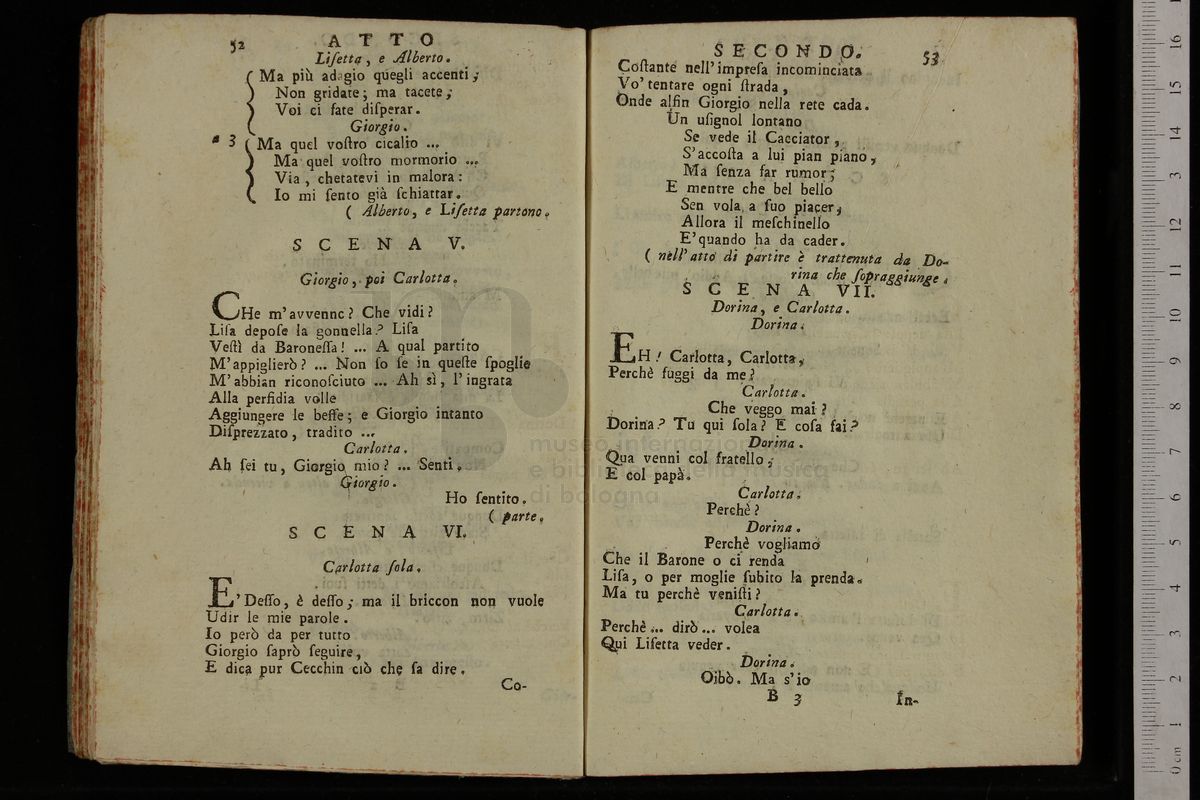 52 ATTO
Liſetta, e Alberto.
Ma più adagio quegli accenti;
Non gridate; ma tacete;
Voi ci fate diſperar.
Giorgio.
a 3 Ma quel voſtro cicalio ...
Ma quel voſtro mormorio ...
Via, chetatevi in malora:
Io mi ſento già ſchiattar.
( Alberto, e Liſetta partono.
SCENA V.
Giorgio, poi Carlotta.
CHe m'avvenne? Che vidi?
Liſa depoſe la gonnella? Liſa
Veſtì da Baroneſſa! ... A qual partito
M'appiglierò? ... Non ſo ſe in queſte ſpoglie
M'abbian riconoſciuto ... Ah sì, l'ingrata
Alla perfidia volle
Aggiungere le beffe; e Giorgio intanto
Diſprezzato, tradito ...
Carlotta.
Ah ſei tu, Giorgio mio? ... Senti.
Giorgio.
Ho ſentito.
( parte.
SCENA VI.
Carlotta ſola.
E'Deſſo, è deſſo; ma il briccon non vuole
Udir le mie parole.
Io però da per tutto
Giorgio ſaprò ſeguire,
E dica pur Cecchin ciò che ſa dire.
Co-
SECONDO. 53
Coſtante nell'impreſa incominciata
Vo' tentare ogni ſtrada,
Onde alfin Giorgio nella rete cada.
Un uſignol lontano
Se vede il Cacciator,
S'accoſta a lui pian piano,
Ma ſenza far rumor;
E mentre che bel bello
Sen vola a ſuo piacer,
Allora il meſchinello
E'quando ha da cader.
( nell'atto di partire è trattenuta da Do-
rina che ſopraggiunge.
SCENA VII.
Dorina, e Carlotta.
Dorina.
EH! Carlotta, Carlotta,
Perchè fuggi da me?
Carlotta.
Che veggo mai?
Dorina? Tu qui ſola? E coſa fai?
Dorina.
Qua venni col fratello,
E col papà.
Carlotta.
Perchè?
Dorina.
Perchè vogliamo
Che il Barone o ci renda
Liſa, o per moglie ſubito la prenda.
Ma tu perchè veniſti?
Carlotta.
Perchè ... dirò ... volea
Qui Liſetta veder.
Dorina.
Oibò. Ma s'io
B 3 In-
museo internazionale
e biblioteca della musica
di bologna
0 cm 1 2 3 4 5 6 7 8 9 10 11 12 13 14 15 16